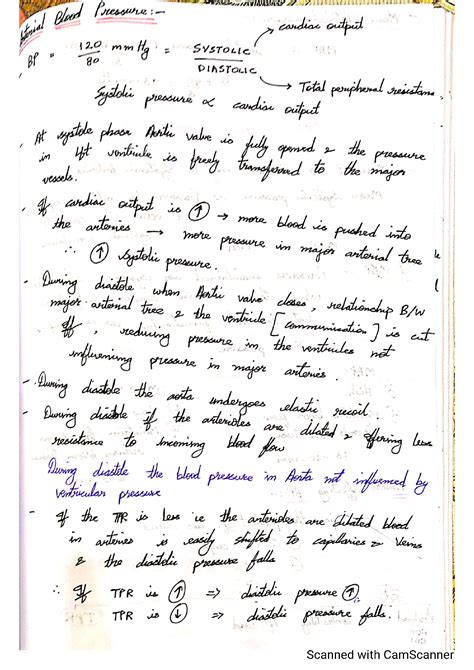 Arterial Blood Pressure:-
cardiac output
- BP = 120/80 mm Hg = SYSTOLIC / DIASTOLIC
Total peripheral resistance
Systolic pressure ∝ cardiac output
- At systole phase Aortic valve is fully opened & the pressure
in left ventricle is freely transferred to the major
vessels.
- If cardiac output is ↑ → more blood is pushed into
the arteries → more pressure in major arterial tree
∴ ↑ systolic pressure.
- During diastole when Aortic valve closes, relationship B/W
major arterial tree & the ventricle [communication] is cut
off, reducing pressure in the ventricles not
influencing pressure in major arteries.
- During diastole the aorta undergoes elastic recoil.
- During diastole if the arterioles are dilated & offering less
resistance to incoming blood flow
During diastole the blood pressure in Aorta not influenced by
ventricular pressure
- If the TPR is less ie the arterioles are dilated blood
in arteries is easily shifted to capillaries & veins
& the diastolic pressure falls
∴ If TPR is ↑ => diastolic pressure ↑.
TPR is ↓ => diastolic pressure falls.
Scanned with CamScanner